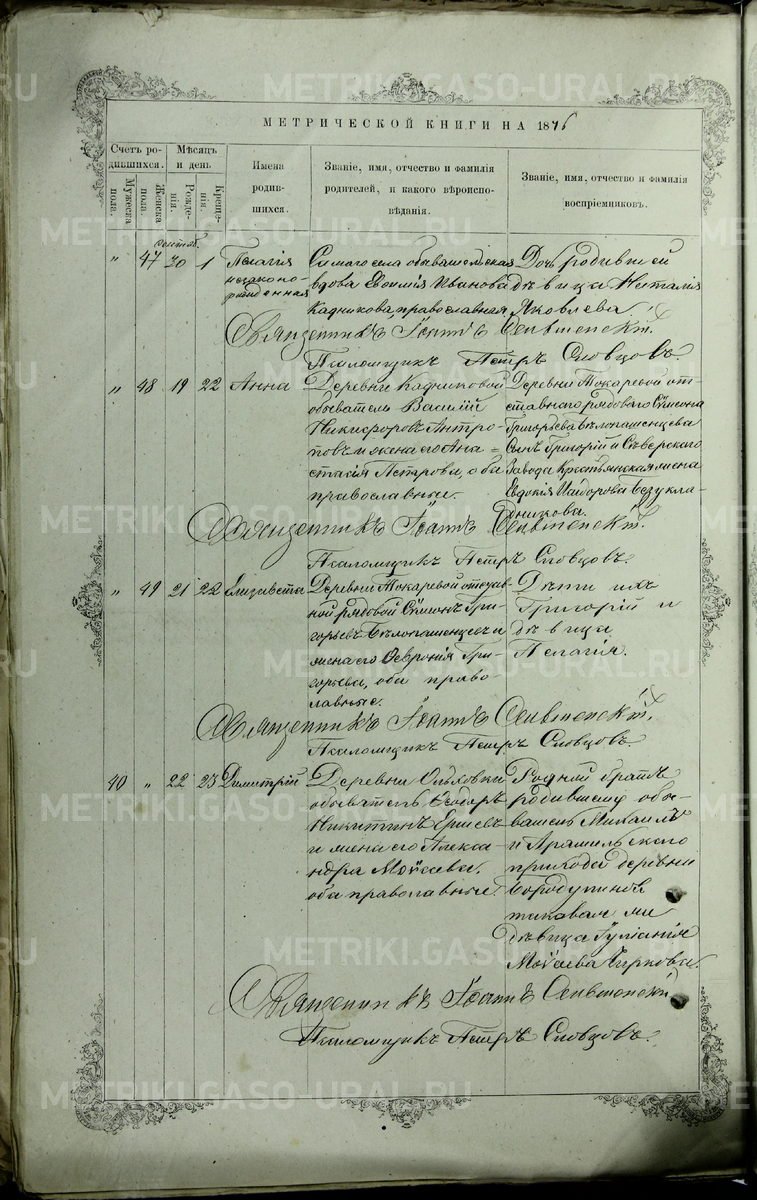 МЕТРИЧЕСКОЙ КНИГИ НА 1876
Счетъ родившихся.
Мужеска пола.
Женска пола.
Мѣсяцъ и день
Рожденія.
Крещенія.
Имена родившихся.
Званіе, имя, отчество и фамилія родителей, и какого вѣроисповѣданія.
Званіе, имя, отчество и фамилія воспріемниковъ.
Сентяб.
„ 47 30 1
Пелагія
незаконо-
рожденная
Самаго села обывательская
вдова Евѳимія Иванова
Кадникова, православная
Дочь родившей
дѣвица Наталія
Яковлева.
Священникъ Іоаннъ
Псаломщикъ Петръ Словцовъ.
„ 48 19 22 Анна
Деревни Кадниковой
обыватель Василій
Никифоровъ Антро-
повъ и жена его Ана-
стасія Петрова, оба
православные.
Деревни Токаревой от-
ставнаго рядоваго Сѷмеона
Григорьева Бѣлопашенцева
сынъ Григорій и Сѣверскаго
завода крестьянская жена
Евдокія Исидорова Безукла-
дникова.
Священникъ Іоаннъ
Псаломщикъ Петръ Словцовъ.
„ 49 21 22 Елизавета
Деревни Токаревой отстав-
ной рядовой Сѷмеонъ Гри-
горьевъ Бѣлопашенцевъ и
жена его Февронія Гри-
горьева, оба право-
славные.
Дѣти ихъ
Григорій и
дѣвица
Пелагія.
Священникъ Іоаннъ
Псаломщикъ Петръ Словцовъ.
40 „ 22 23 Димитрій
Деревни Ольховки
обыватель Ѳеодоръ
Никитинъ Ершевъ
и жена его Алекса-
ндра Моѵсеева,
оба православные.
Родной братъ
родившему обы-
ватель Михаилъ
и Арамильскаго
прихода деревни
Бородулиной
таковая же
дѣвица Іуліанія
Моѵсеева Чиркова.
Священникъ Іоаннъ
Псаломщикъ Петръ Словцовъ.
METRIKI.GASO-URAL.RU